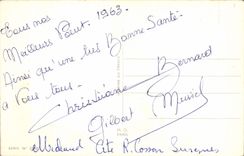 Tous nos
Meilleurs Vœux. 1963.
Ainsi qu'une très Bonne Santé.
a Vous tous.
Bernard
Christiane
Gilbert
Muriel
Cité R. Cosson Suresnes